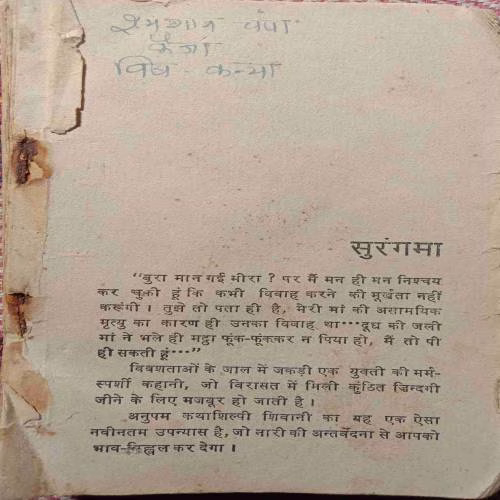 श्मशान चंपा
कैंजा
विष-कन्या
सुरंगमा
"बुरा मान गई मीरा ? पर मैं मन ही मन निश्चय
कर चुकी हूं कि कभी विवाह करने की मूर्खता नहीं
करूंगी । तुझे तो पता ही है, मेरी मां की असामयिक
मृत्यु का कारण ही उनका विवाह था···दूध की जली
मां ने भले ही मट्ठा फूंक-फूंककर न पिया हो, मैं तो पी
ही सकती हूं···"
विवशताओं के जाल में जकड़ी एक युवती की मर्म-
स्पर्शी कहानी, जो विरासत में मिली कुंठित ज़िन्दगी
जीने के लिए मजबूर हो जाती है ।
अनुपम कथाशिल्पी शिवानी का यह एक ऐसा
नवीनतम उपन्यास है, जो नारी की अन्तर्वेदना से आपको
भाव-विह्वल कर देगा ।